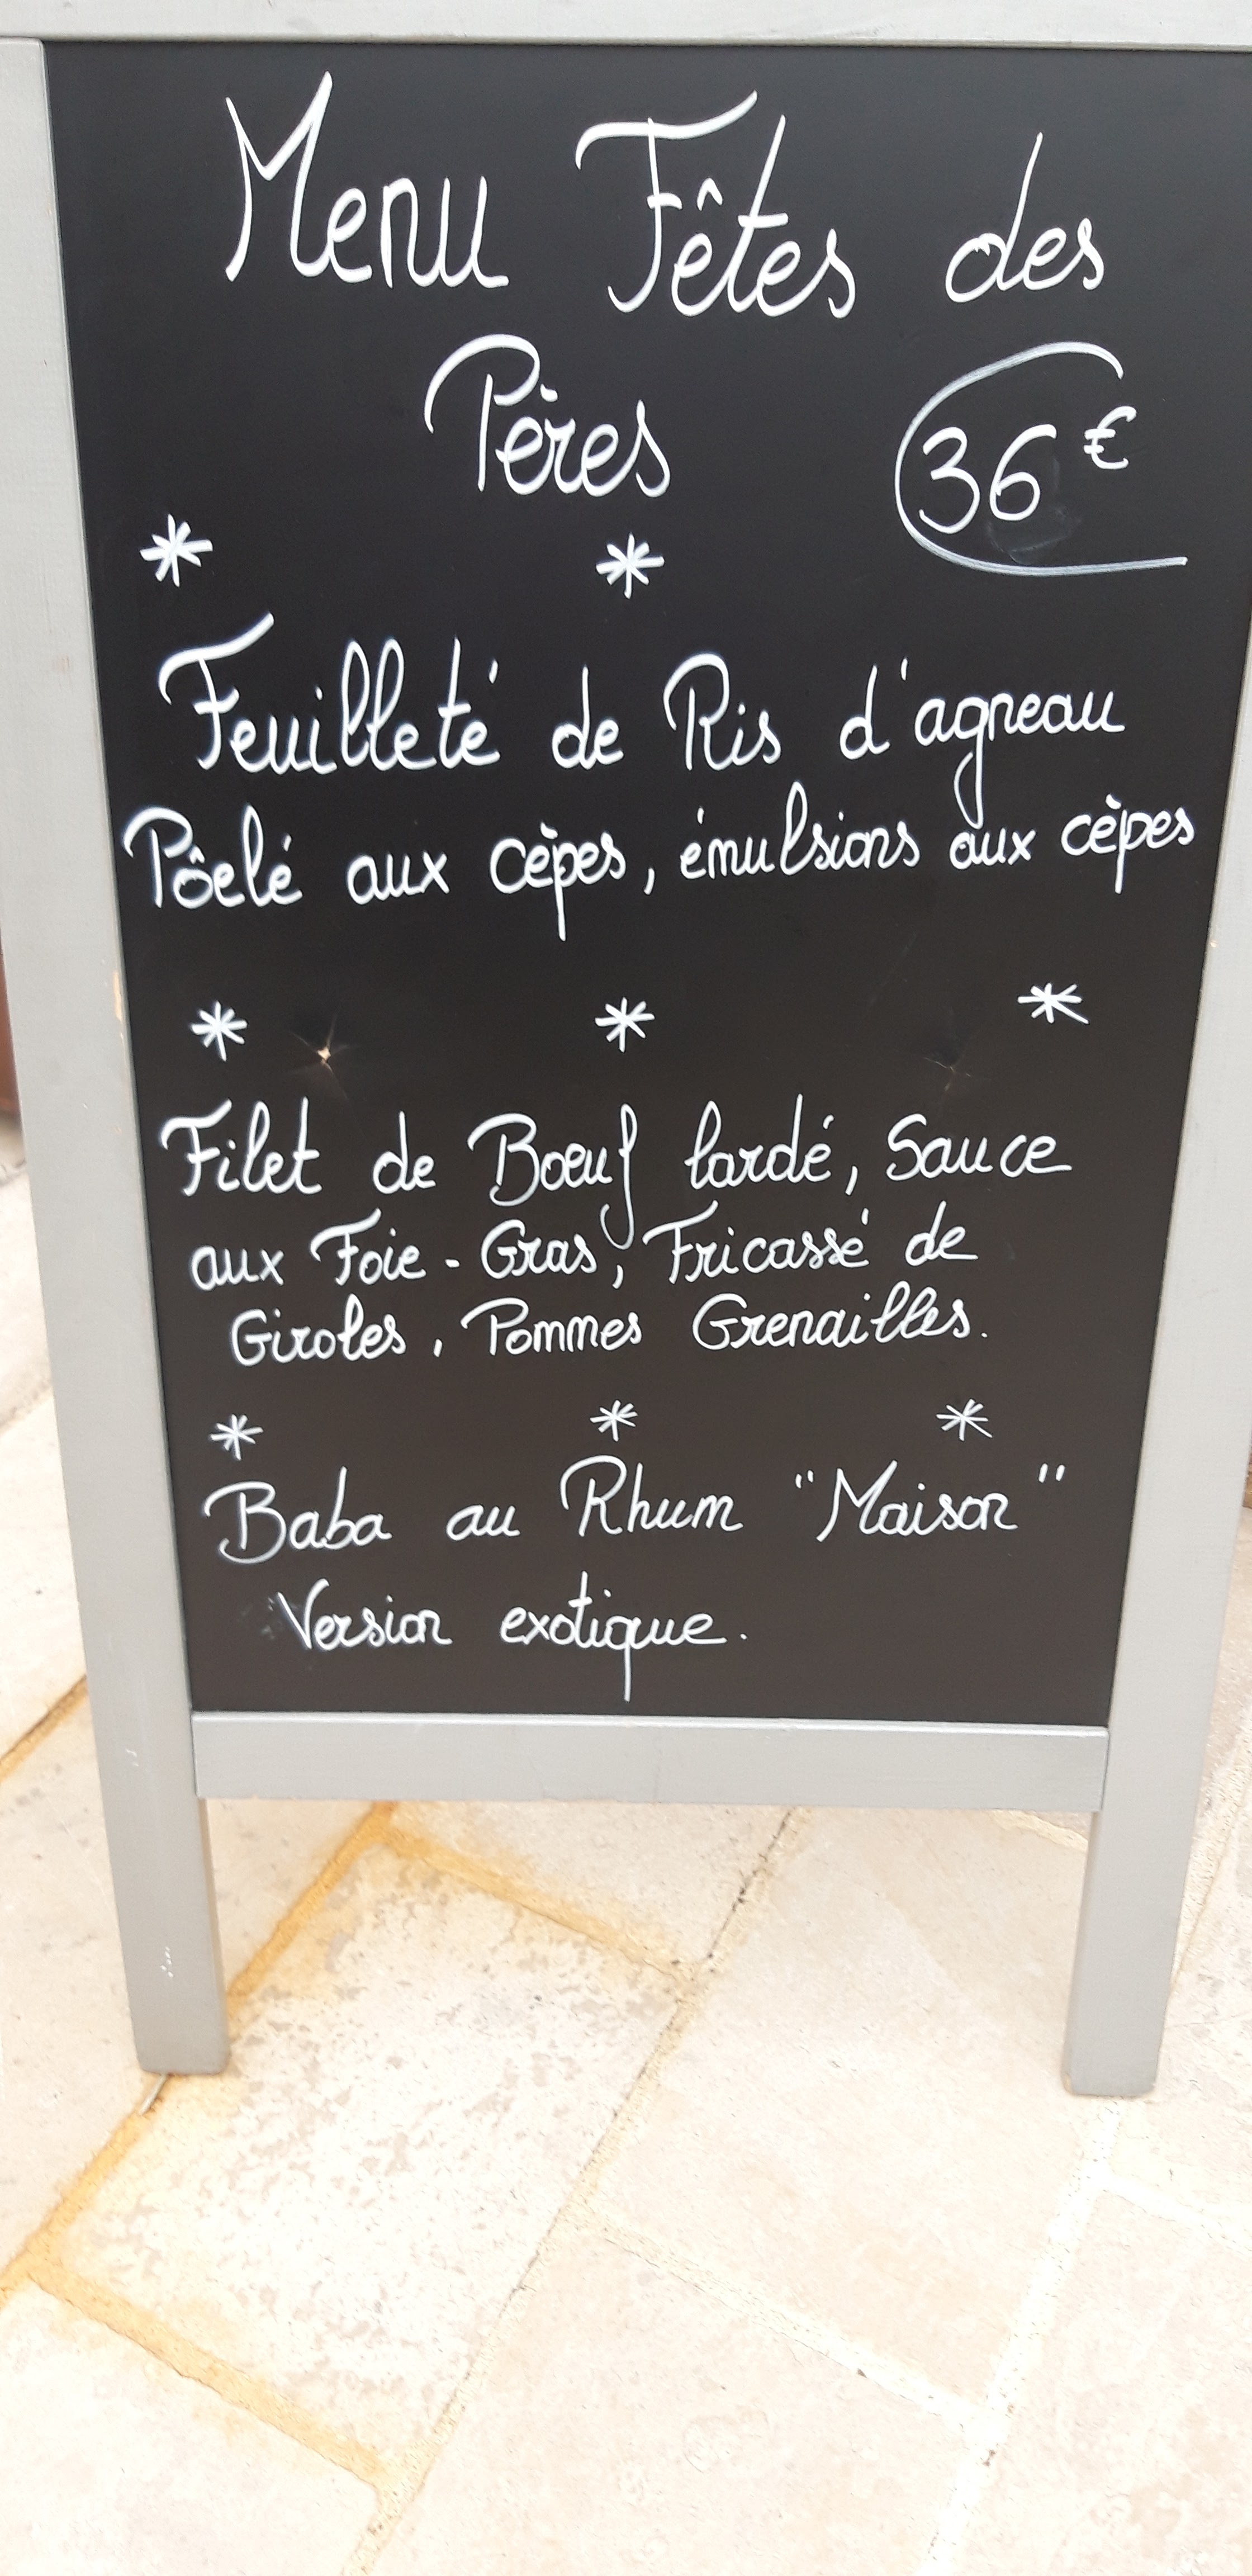 Menu Fêtes des
Pères 36 €
* *
Feuilleté de Ris d'agneau
Pôelé aux cèpes, émulsions aux cèpes
* * *
Filet de Boeuf lardé, Sauce
aux Foie-Gras, Fricassé de
Giroles, Pommes Grenailles.
* * *
Baba au Rhum "Maison"
Version exotique.